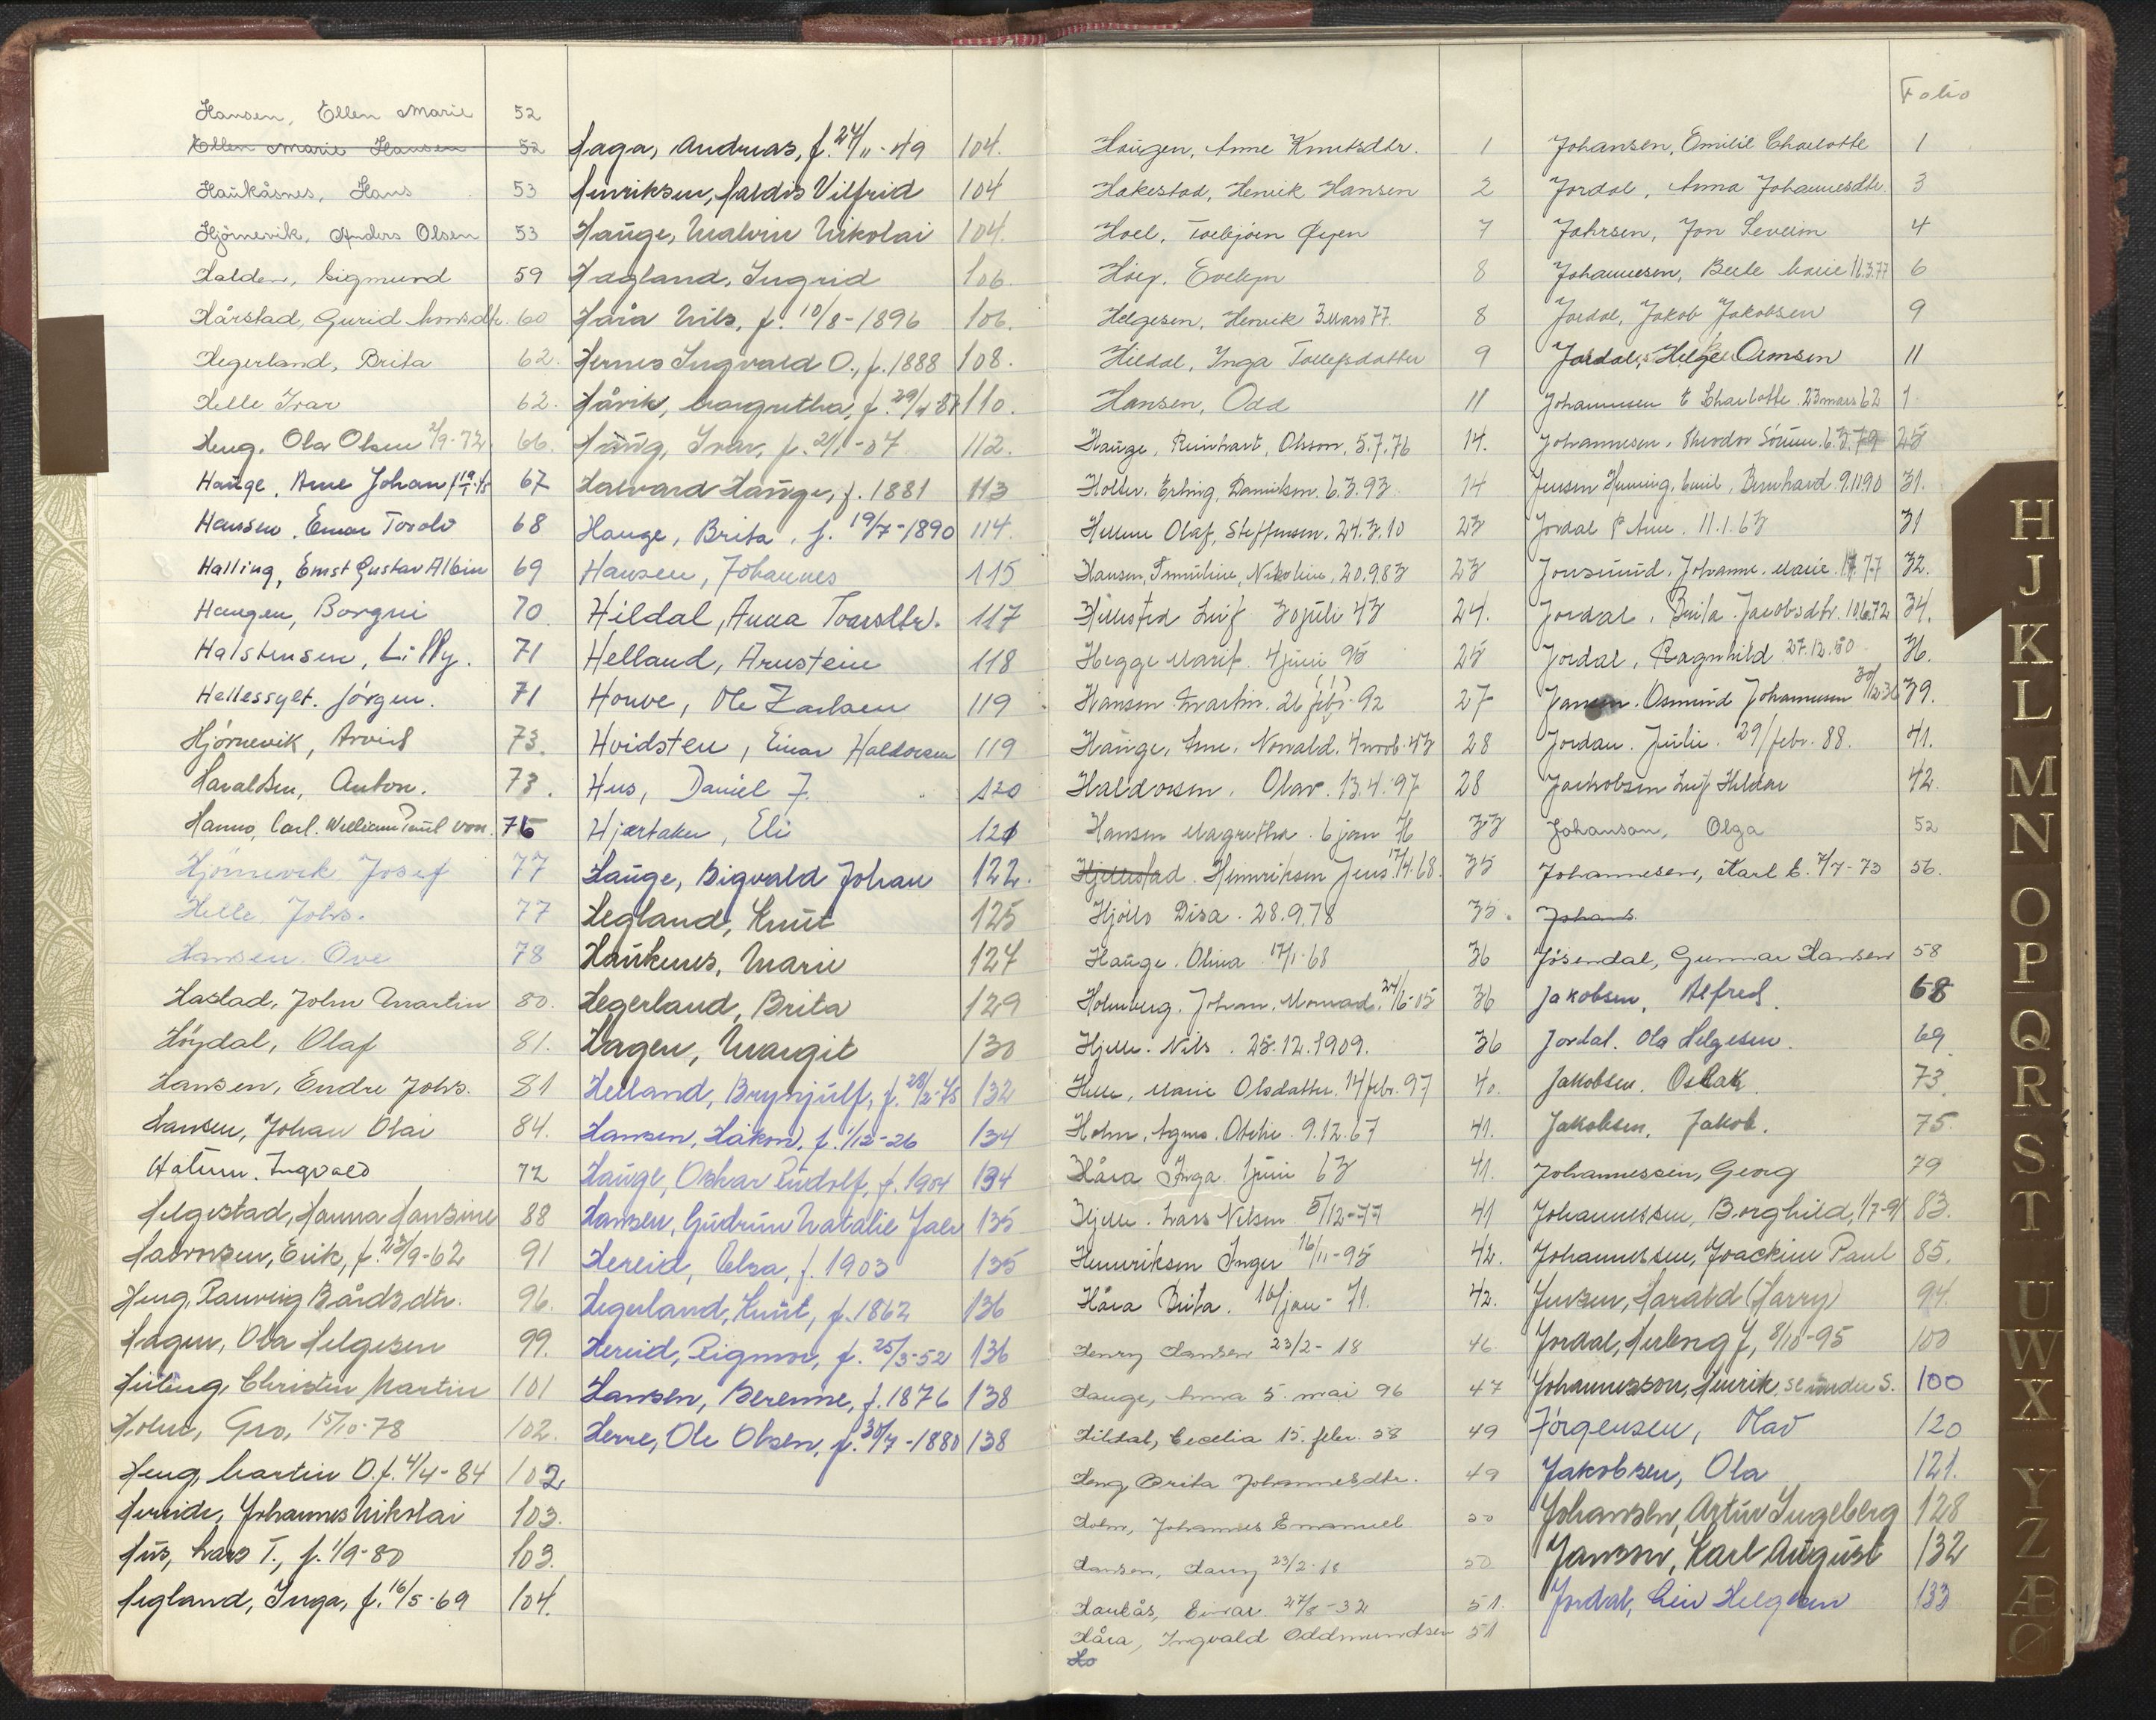 Hansen, Ellen Marie 52
Ellen Marie Hansen 52
Haukåsnes, Hans 53
Hjørnevik, Anders Olsen 53
Halden, Sigmund 59
Hårstad, Gurid Monsdtr. 60
Hegerland, Brita 62.
Helle Ivar 62.
Heng. Ola Olsen 2/9-72 66.
Hauge, Arne Johan 67
Hansen, Einar Torolv 68
Halling, Ernst Gustav Albin 69
Haugen, Borgni 70
Halstensen, Lilly. 71
Hellessylt. Jørgen. 71
Hjørnevik, Arvid 73.
Haraldsen, Anton. 73.
Hanno, Carl. William Paul von. 75
Hjørnevik Josef 77
Helle. Johs. 77
Hansen. Ove 78
Hastad, John Martin 80.
Høydal, Olaf 81.
Hansen, Endre Johs. 81
Hansen, Johan Olai 84.
Hatum. Ingvald 72
Helgestad, Hanna Hansine 88
Halvorsen, Erik, f. 23/9-62 91
Heng, Bårdsdtr. 96.
Hagen, Ola Helgesen 99.
Christen Martin 101
Holm, Gro, 15/10-78 102.
Heng, Martin O. f. 4/4-84 102
Hereide, Johannes Nikolai 103.
Hus, Lars T., f. 1/9-80 103.
Hegland, Inga, f. 16/5-69 104.
Haga, Andreas, f. 24/11-49 104.
Henriksen, Haldis Vilfrid 104
Hauge, Malvin Nikolai 104.
Hagland, Ingrid 106.
Håra Nils, f. 10/8-1896 106.
Hernes Ingvald O., f. 1888 108.
Håvik, Margretha, f. 110.
Haug, Ivar, f. 2/1-07 112.
Halvard Hauge, f. 1881 113
Hauge, Brita, f. 19/7-1890 114.
Hansen, Johannes 115
Hildal, Anna Ivarsdtr. 117
Helland, Arnstein 118
Houve, Ole Larsen 119
Hvidsten, Einar Haldorsen 119
Hus, Daniel J. 120
Hjartaker, Eli 121
Hauge, Sigvald Johan 122.
Hegland, Knut 125
Haukenes, Marie 127
Hegerland, Brita 129
Hagen, Margit 130
Helland, Brynjulf, f. 28/2-45 132
Hansen, Håkon, f. 1/12-26 134
Hauge, Oskar Rudolf, f. 1904 134
Hansen, Gudrun Natalie Jaer 135
Hereid, Elsa, f. 1903 135
Hegerland, Knut, f. 1862 136
Hereid, Rigmor, f. 25/3-52 136
Hansen, Berenne, f. 1876 138
Herre, Ole Olsen, f. 30/7-1880 138
Haugen, Anne Knutsdtr. 1
Hakestad, Henrik Hansen 2
Hoel, Torbjørn Øyen 7
Høeg, Evelyn 8
Helgesen, Henrik 3 Mars 77. 8
Hildal, Inga Tollefsdatter 9
Hansen, Odd 11
Hauge, Reinhart, Olsson, 5.7.76 14.
Holter, Erling, Danielsen, 6.3.93 14
Helleve Olaf, Steffensen. 24.3.10 23
Hansen, Nikoline, 20.9.83 23
Hillestad Leif 30 juli 43 24.
Hegge Marit. 4 juni 95 25
Hansen Martin. 26 febr. 92 27
Hauge, Arne. Norvald. 4 novb. 43 28
Haldorsen, Olav. 13.4.97 28
Hansen Magretha. 6 jan 76 33
Hjellestad. Henriksen Jens. 17/4.68. 35
Hjölls Disa. 28.9.78 35.
Hauge. Olina. 17/1-68 36
Holmberg. Johan. Monrad. 24/6-05 36
Hjelle. Nils. 25.12.1909. 36
Helle, Marie Olsdatter. 14 febr. 97 40.
Holm, Agnes. Otelie. 9.12.67 41.
Håra Inga. 1 juni 63 41.
Hjelle. Lars Nilsen 5/12-77 41
Henriksen Inger 16/11-95 42.
Håra Brita. 16/jan-71. 42.
Henry Hansen 23/2-18 46
Hauge, Anna 5. mai 96 47
Hildal, Cecelia 15. febr. 58 49
Heng Brita Johannesdtr. 49
Holm, Johannes Emanuel 50
Hansen, Harry 23/2-18 50
Haukås, Einar 27/8-32 51.
Håra, Ingvald Oddmundsen 51
Ho
Folio
Johansen, Emilie Charlotte 1
Jordal, Anna Johannesdtr. 3
Jahrsen, Jon Severin 4
Johannesen, Berte Marie 11.3.77 6
Jordal, Jakob Jakobsen 9
Jordal, Helge Ormsen 11
Johannesen E Charlotte. 23 mars 62 1
Johannesen, Theodor Sørum. 6.3.79 25
Jensen Henning, Emil, Bernhard. 9.11.90 31.
Jordal P Arne. 11.1.63 31
Jonsmid. Johanne. Marie. 77 32.
Jordal, Brita. Jacobsdtr. 10.6.72 34.
Jordal, Ragnhild 27.12.80 36.
Jansen. Osmund Johannesen 30/12 36 39.
Jordan. Julie. 29/febr. 88. 41.
Jackobsen Leif Heldar 42.
Johanson, Olga 52
Johannesen, Karl E. 7/7-73 56.
Johans
Jøsendal, Gunnar Hansen 58
Jakobsen, Alfred. 68
Jordal. Ola Helgesen. 69
Jakobsen. Oslak 73.
Jakobsen, Jakob. 75.
Johannessen, Georg 79
Johannessen, Borghild, 1/7-91 83.
Johannessen, Joackim Paul 85.
Jensen, Harald (Harry) 94.
Jordal, Herborg J, 8/10-95 100
Johannesson, Henrik, se under S. 100
Jørgensen, Olav 120
Jakobsen, Ola 121.
Johansen, Artur Ingeberg 128
Janson, Karl August 132
Jordal, Leiv Helgesen 133
H
J
K
L
M
N
O
P
Q
R
S
T
U
W
X
Y
Z
Æ
Ø